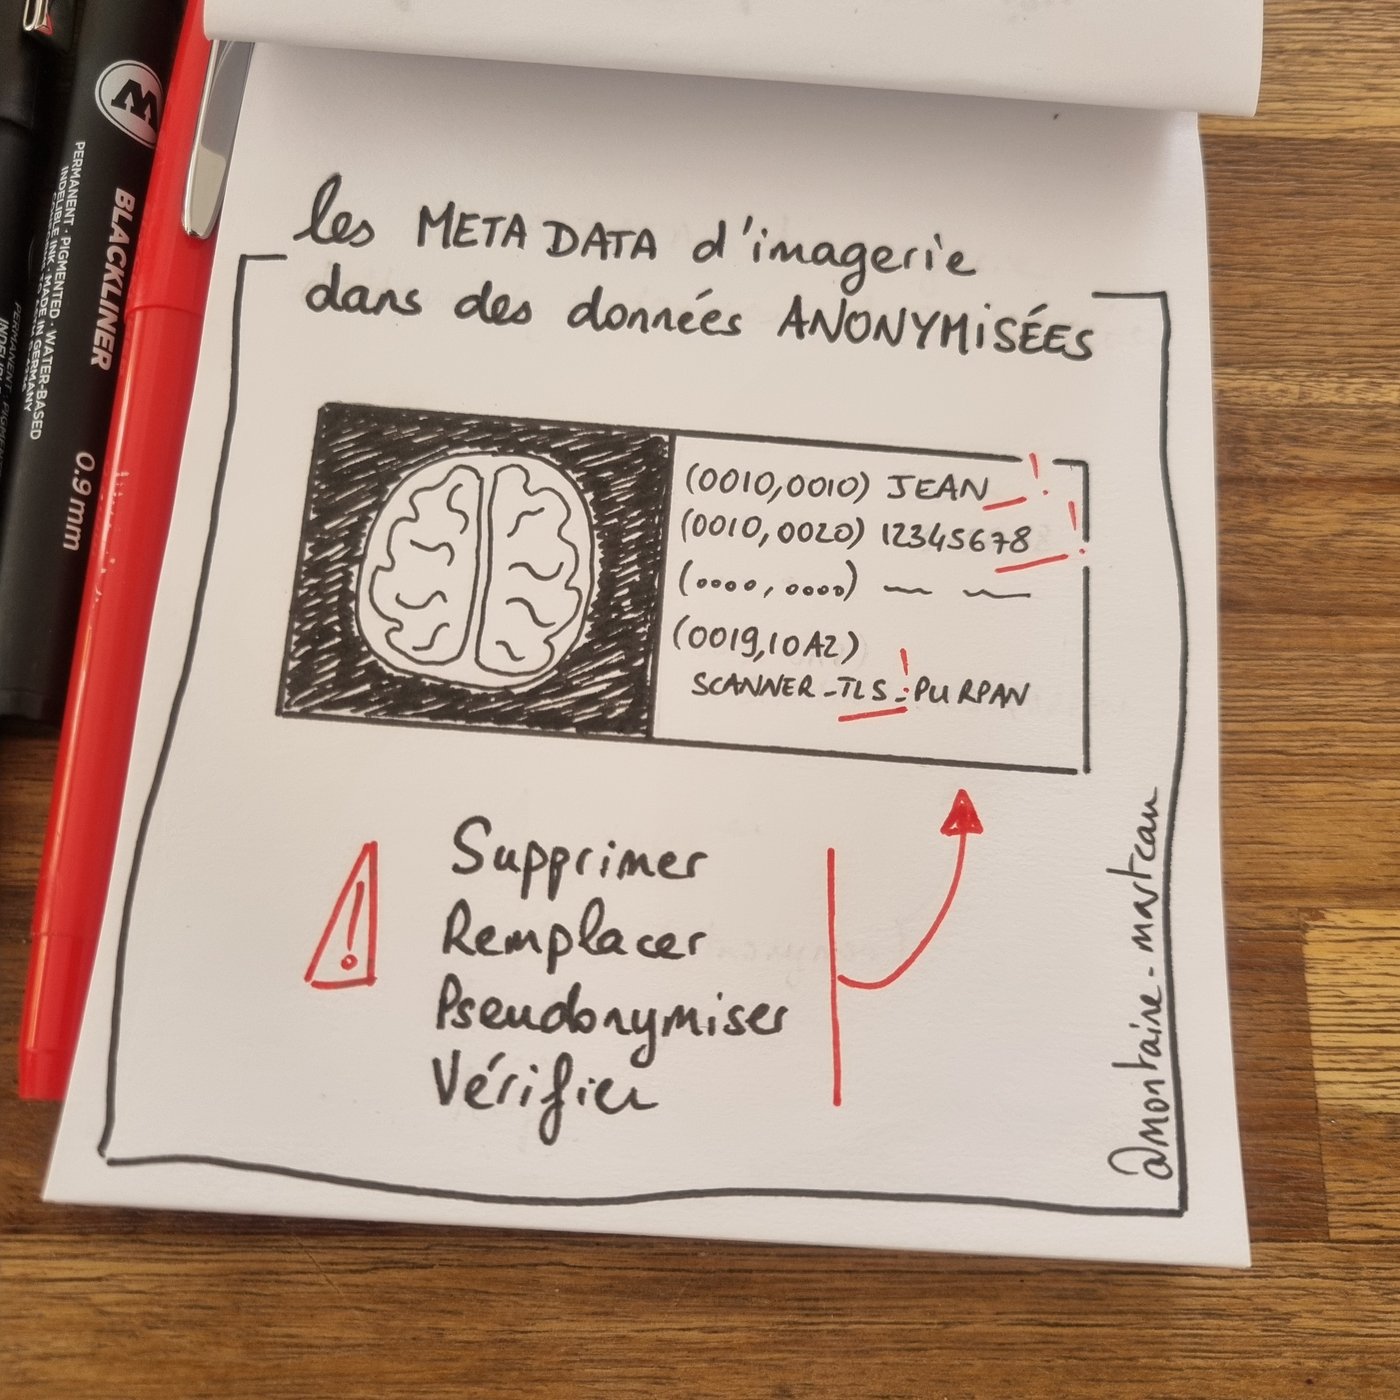 les META DATA d'imagerie
dans des données ANONYMISÉES
(0010,0010) JEAN
(0010,0020) 12345678
(...., ....)
(0019,10A2)
SCANNER_TLS_PURPAN
Supprimer
Remplacer
Pseudonymiser
Vérifier
@montaine-marteau
BLACKLINER
0.9 mm
PERMANENT · PIGMENTED · WATER-BASED
INDELIBLE INK · MADE IN GERMANY